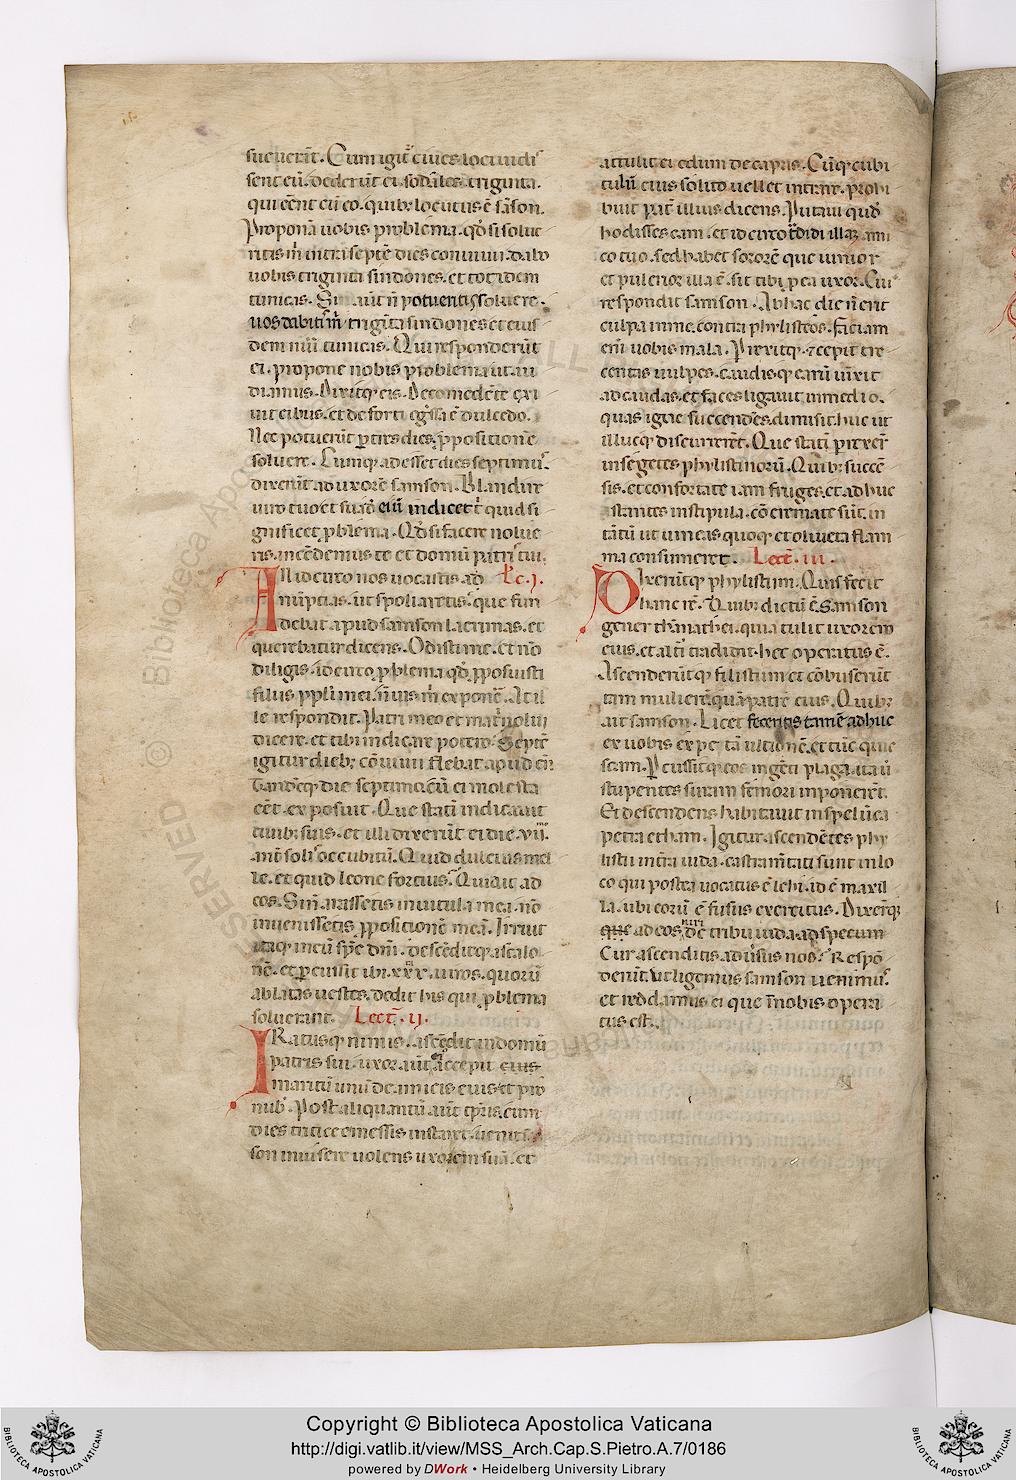 sueuerūt. Cum igit᷑ ciues loci uidiſ
ſent eū. dederūt ei ſodales triginta.
qui eēnt cū eo. quib; locutus ē ſāſon.
Proponā uobis problema. qd̓ ſi ſolue
ritis m̄ intra ſeptē dies conuiuii. dabo
uobis triginta ſindones. et totidem
tunicas. Sin aūt n̄ potueritis ſoluere.
uos dabitis m̄ triginta ſindones et eius
dem nūi tunicas. Qui reſponderūt
ei. propone nobis problema ut au
diamus. Dixitq; eis. De comedēte exi
uit cibus. et de forti eg̃ſſa ē dulcedo.
Nec potuerūt ꝑ tres dies ꝓpoſitionē
ſoluere. Cumq; adeſſet dies ſeptimus.
dixerūt ad uxorē ſamſon. Blandire
uiro tuo et ſuadē ei ut indicet t̓ quid ſi
gnificet ꝓblema. Qd̓ ſi facere nolue
ris. incēdemus te et domū patris tui.
AN idcirco nos uocaſtis ad Lc̄. j.
nuptias. ut ſpoliaretis. que fun
debat apud ſamſon lacrimas. et
querebatur dicens. Odiſti me. et nō
diligis. idcirco ꝓblema qd̓ ꝓpoſuiſti
filiis ppl̓i mei. n̄ uis m̄ exponē. At il
le reſpondit. Patri meo et matri nolui
dicere. et tibi indicare potero. Septē
igitur dieb; cōuiuii flebat apud eū.
tandēq; die ſeptimo cū ei moleſta
eēt. expoſuit. Que ſtati indicauit
ciuib; ſuis. et illi dixerūt ei die .vii.
ante ſolis occubitū. Quid dulcius mel
le. et quid leone fortius. Qui ait ad
eos. Si n̄ araſſetis in uitula mea. nō
inueniſſetis ꝓpoſitionē meā. Irruit
itaq; in eū ſp̄c dn̄i. deſcēditq; aſcalo
nē. et ꝑcuſſit ibi .xxx. uiros. quorū
ablatas ueſtes. dedit his qui ꝓblema
ſoluerant. Lect̄. ij.
IRatusq; nimis. aſcēdit in domū
patris ſui. uxor aūt accepit eius
maritū unū de amicis eius et pro
nub̓. Poſt aliquantū aūt tp̄ris. cum
dies triticee meſſis inſtaret. uenit ſā
ſon inuiſere uolens uxorem ſuā. et
attulit ei edum de capris. Cūq; cubi
culū eius ſolito uellet intrare. prohi
buit pat̄ illius dicens. Putaui quod
hodiſſes eam. et idcirco tradidi illam ami
co tuo. ſed habet ſororē que iunior
et pulcrior illa ē. ſit tibi pro ea uxor. Cui
reſpondit ſamſon. Ab hac die n̄ erit
culpa in me. contra phyliſteos. faciam
eni uobis mala. Prexitq; et cepit tre
centas uulpes. caudiſq; earū iūxit
ad caudas. et faces ligauit in medio.
quas igne ſuccendēs. dimiſit. huc ut
illucq; diſcurrerēt. Que ſtati perrexer̄
in ſegetes phyliſtinorū. Quib; ſuccē
ſis. et confortate iam fruges. et adhuc
ſtantes in ſtipula. cōcremate ſūt. in
tātū ut uineas quoq; et oliueta flam
ma conſumeret. Lect̄. iii.
DIxerūtq; phyliſtiim. Quis fecit
hanc rē. Quib; dictū ē. Samſon
gener thāmathei. quia tulit uxorem
eius. et alt̓i tradidit. hec operatus ē.
Aſcenderūtq; filiſtiim et cōbuſerūt
tam mulierē quā patrē eius. Quib;
ait ſamſon. Licet feceritis tamē adhuc
ex uobis expetā ultionē. et tūc quie
ſcam. Percuſſitq; eos ingēti plaga. ita ū
ſtupentes ſuram femori imponerēt.
Et deſcendens habitauit in ſpelūca
petra etham. Igitur aſcendētes phy
liſtii in tra iuda. caſtrametati ſunt in lo
co qui poſtea uocatus ē lehi. id ē maxil
la. ubi eorū ē fuſus exercitus. Dixerūtq;
ad eos de tribu iuda. ad ſpecum
Cur aſcenditis aduſus nos. Reſpō
derūt. Vt ligemus ſamſon uenimus.
et reddamus ei que ī nobis opera
tus eſt.
Copyright © Biblioteca Apostolica Vaticana
http://digi.vatlib.it/view/MSS_Arch.Cap.S.Pietro.A.7/0186
powered by DWork • Heidelberg University Library
BIBLIOTECA APOSTOLICA VATICANA
BIBLIOTECA APOSTOLICA VATICANA